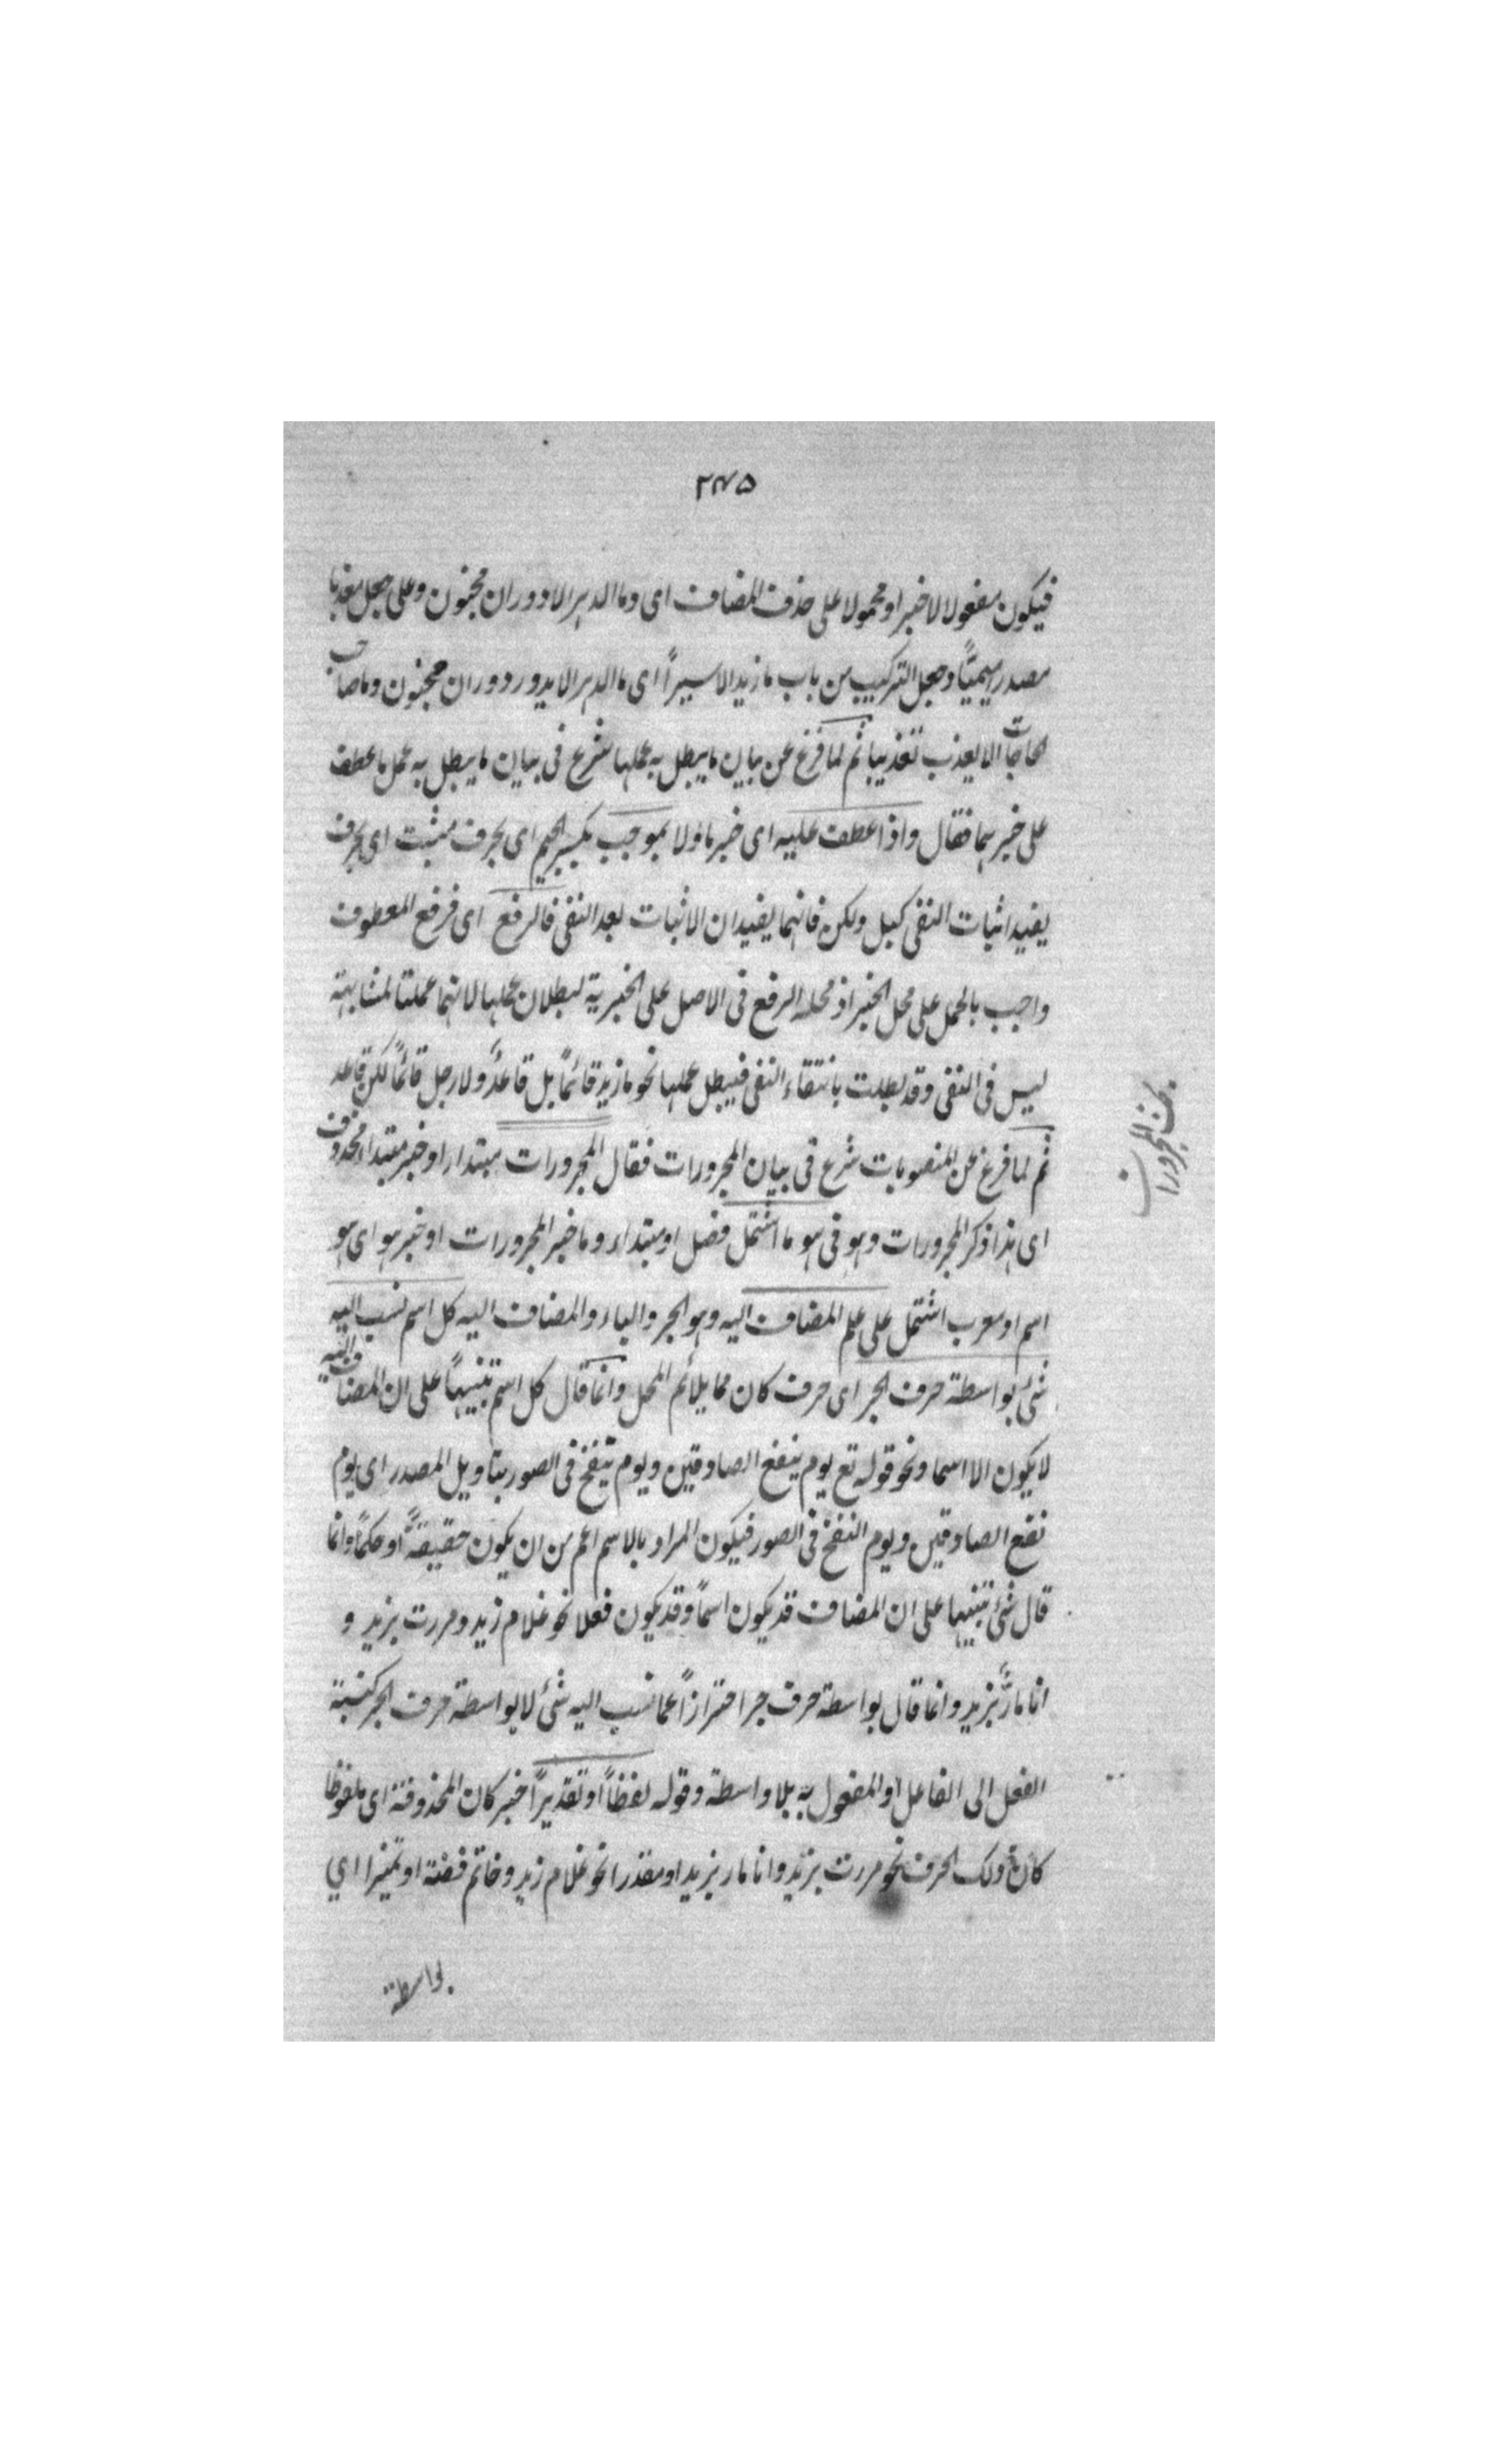 ٢٤٥
فيكون مفعولا لا خبرا او محمولا على حذف المضاف اى وما الدهر الا دوران مجنون وعلى جعل معذبا
مصدر ميميّاً وجعل التركيب من باب ما زيد الا سيراً اى ما الدهر الا يدور دوران مجنون وما صاحب
الحاجات الا يعذب تعذيبا ثم لما فرغ عن بيان ما يبطل به عملها شرع فى بيان ما يبطل به عمل ما عطف
على خبرهما فقال واذا عطف عليه اى خبر ما ولا بموجب بكسر الجيم اى بحرف مثبت اى بحرف
يفيد اثبات النفى كبل ولكن فانهما يفيدان الاثبات بعد النفى فالرفع اى فرفع المعطوف
واجب بالحمل على محل الخبر اذ محله الرفع فى الاصل على الخبرية لبطلان عملها لانهما عملتا لمشابهة
ليس فى النفى وقد بطلت بانتقاء النفى فيبطل عملها نحو ما زيد قائماً بل قاعدٌ ولا رجل قائماً لكن قاعد
ثم لما فرغ عن المنصوبات شرع فى بيان المجرورات فقال المجرورات مبتدا او خبر مبتداء محذوف
اى هذا ذكر المجرورات وهو فى هو ما اشتمل فصل او مبتداء وما خبر المجرورات او خبر هو اى هو
اسم او معرب اشتمل على علم المضاف اليه وهو الجر والياء والمضاف اليه كل اسم نسب اليه
شئ بواسطة حرف الجر اى حرف كان مما يلائم المحل وانما قال كل اسم تنبيهاً على ان المضاف اليه
لا يكون الا اسما ونحو قوله تع يوم ينفع الصادقين ويوم ينفخ فى الصور بتاويل المصدر اى يوم
نفع الصادقين ويوم النفخ فى الصور فيكون المراد بالاسم اعم من ان يكون حقيقةً او حكماً وانما
قال شئ تنبيها على ان المضاف قد يكون اسماً وقد يكون فعلا نحو غلام زيد ومررت بزيد و
انا مارٌّ بزيد وانما قال بواسطة حرف جر احترازاً عما نسب اليه شئ لا بواسطة حرف الجر كنسبة
الفعل الى الفاعل او المفعول به بلا واسطة وقوله لفظاً او تقديراً خبر كان المحذوفة اى ملفوظا
كان ذلك الحرف نحو مررت بزيد وانا مار بزيد او مقدرا نحو غلام زيد وخاتم فضة او تميزا اي
بواسطة
بحث المجرورات